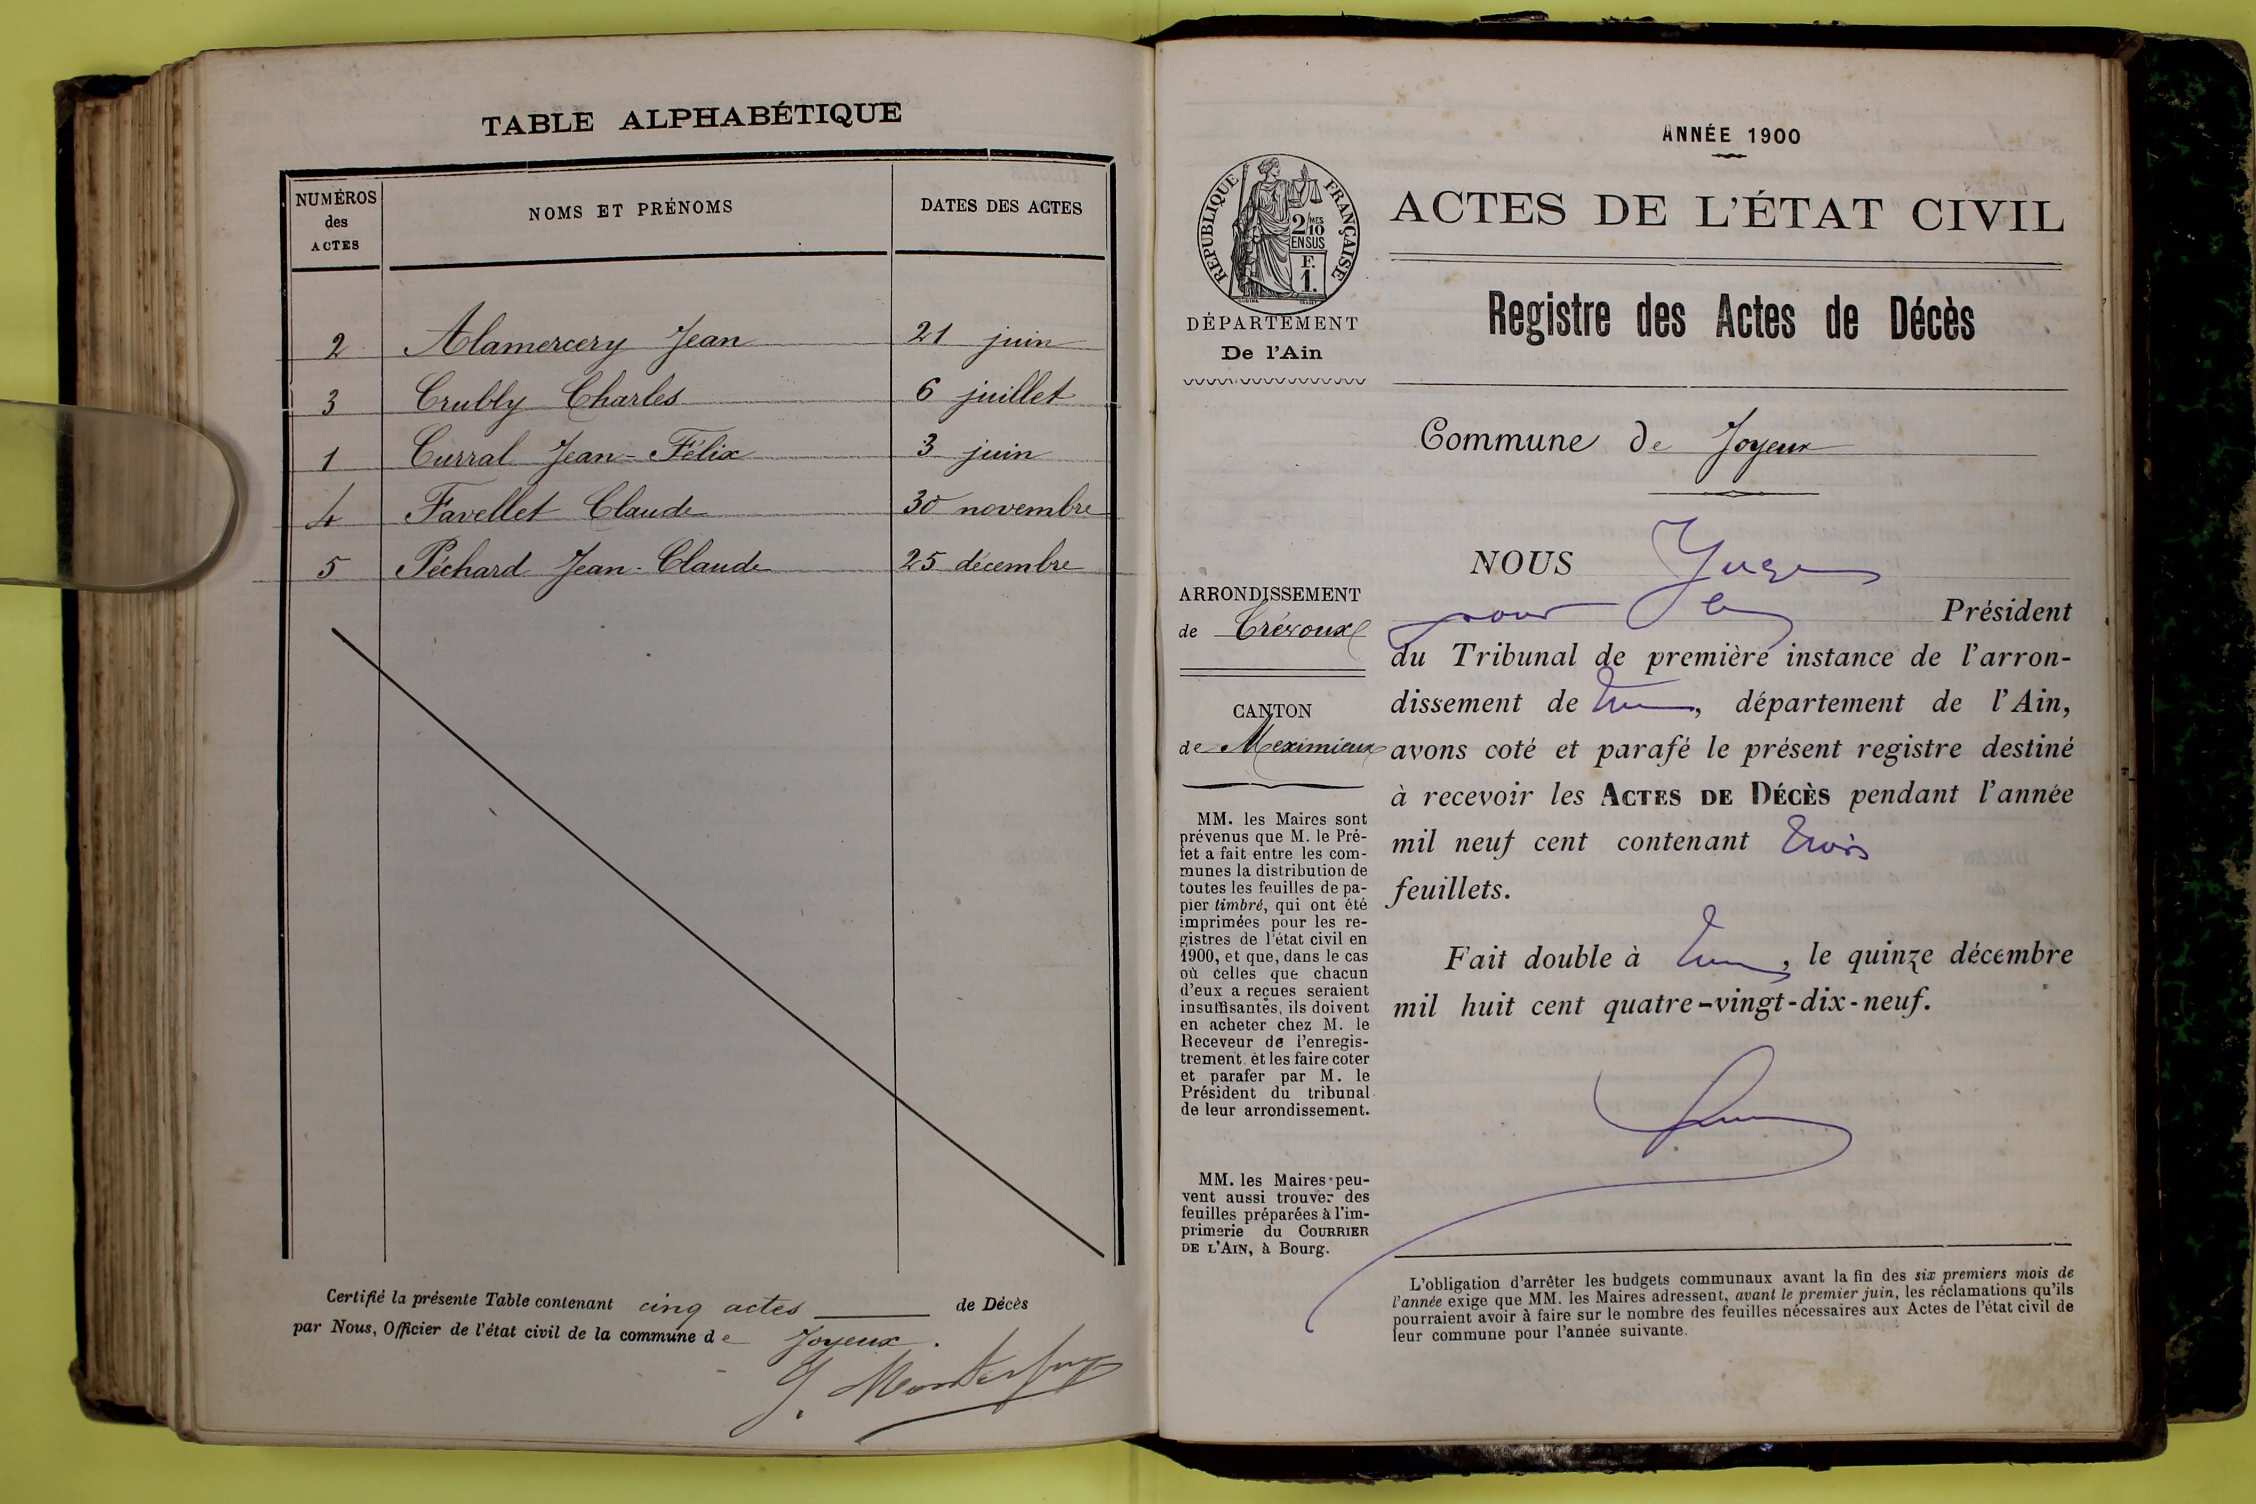 TABLE ALPHABÉTIQUE
NUMÉROS
des
ACTES
NOMS ET PRÉNOMS
DATES DES ACTES
2 Alamercery Jean 21 juin
3 Crubly Charles 6 juillet
1 Curral Jean-Félix 3 juin
4 Favellet Claude 30 novembre
5 Péchard Jean-Claude 25 décembre
Certifié la présente Table contenant cinq actes de Décès
par Nous, Officier de l'état civil de la commune de Joyeux.
ANNÉE 1900
RÉPUBLIQUE FRANÇAISE
2/10
MES
EN SUS
F.
1.
ACTES DE L'ÉTAT CIVIL
DÉPARTEMENT
De l'Ain
Registre des Actes de Décès
Commune de Joyeux
ARRONDISSEMENT
de Trévoux
CANTON
de Meximieux
MM. les Maires sont
prévenus que M. le Pré-
fet a fait entre les com-
munes la distribution de
toutes les feuilles de pa-
pier timbré, qui ont été
imprimées pour les re-
gistres de l'état civil en
1900, et que, dans le cas
où celles que chacun
d'eux a reçues seraient
insuffisantes, ils doivent
en acheter chez M. le
Receveur de l'enregis-
trement et les faire coter
et parafer par M. le
Président du tribunal
de leur arrondissement.
MM. les Maires peu-
vent aussi trouver des
feuilles préparées à l'im-
primerie du COURRIER
DE L'AIN, à Bourg.
NOUS Juge
pour le Président
du Tribunal de première instance de l'arron-
dissement de , département de l'Ain,
avons coté et parafé le présent registre destiné
à recevoir les ACTES DE DÉCÈS pendant l'année
mil neuf cent contenant trois
feuillets.
Fait double à , le quinze décembre
mil huit cent quatre-vingt-dix-neuf.
L'obligation d'arrêter les budgets communaux avant la fin des six premiers mois de
l'année exige que MM. les Maires adressent, avant le premier juin, les réclamations qu'ils
pourraient avoir à faire sur le nombre des feuilles nécessaires aux Actes de l'état civil de
leur commune pour l'année suivante.